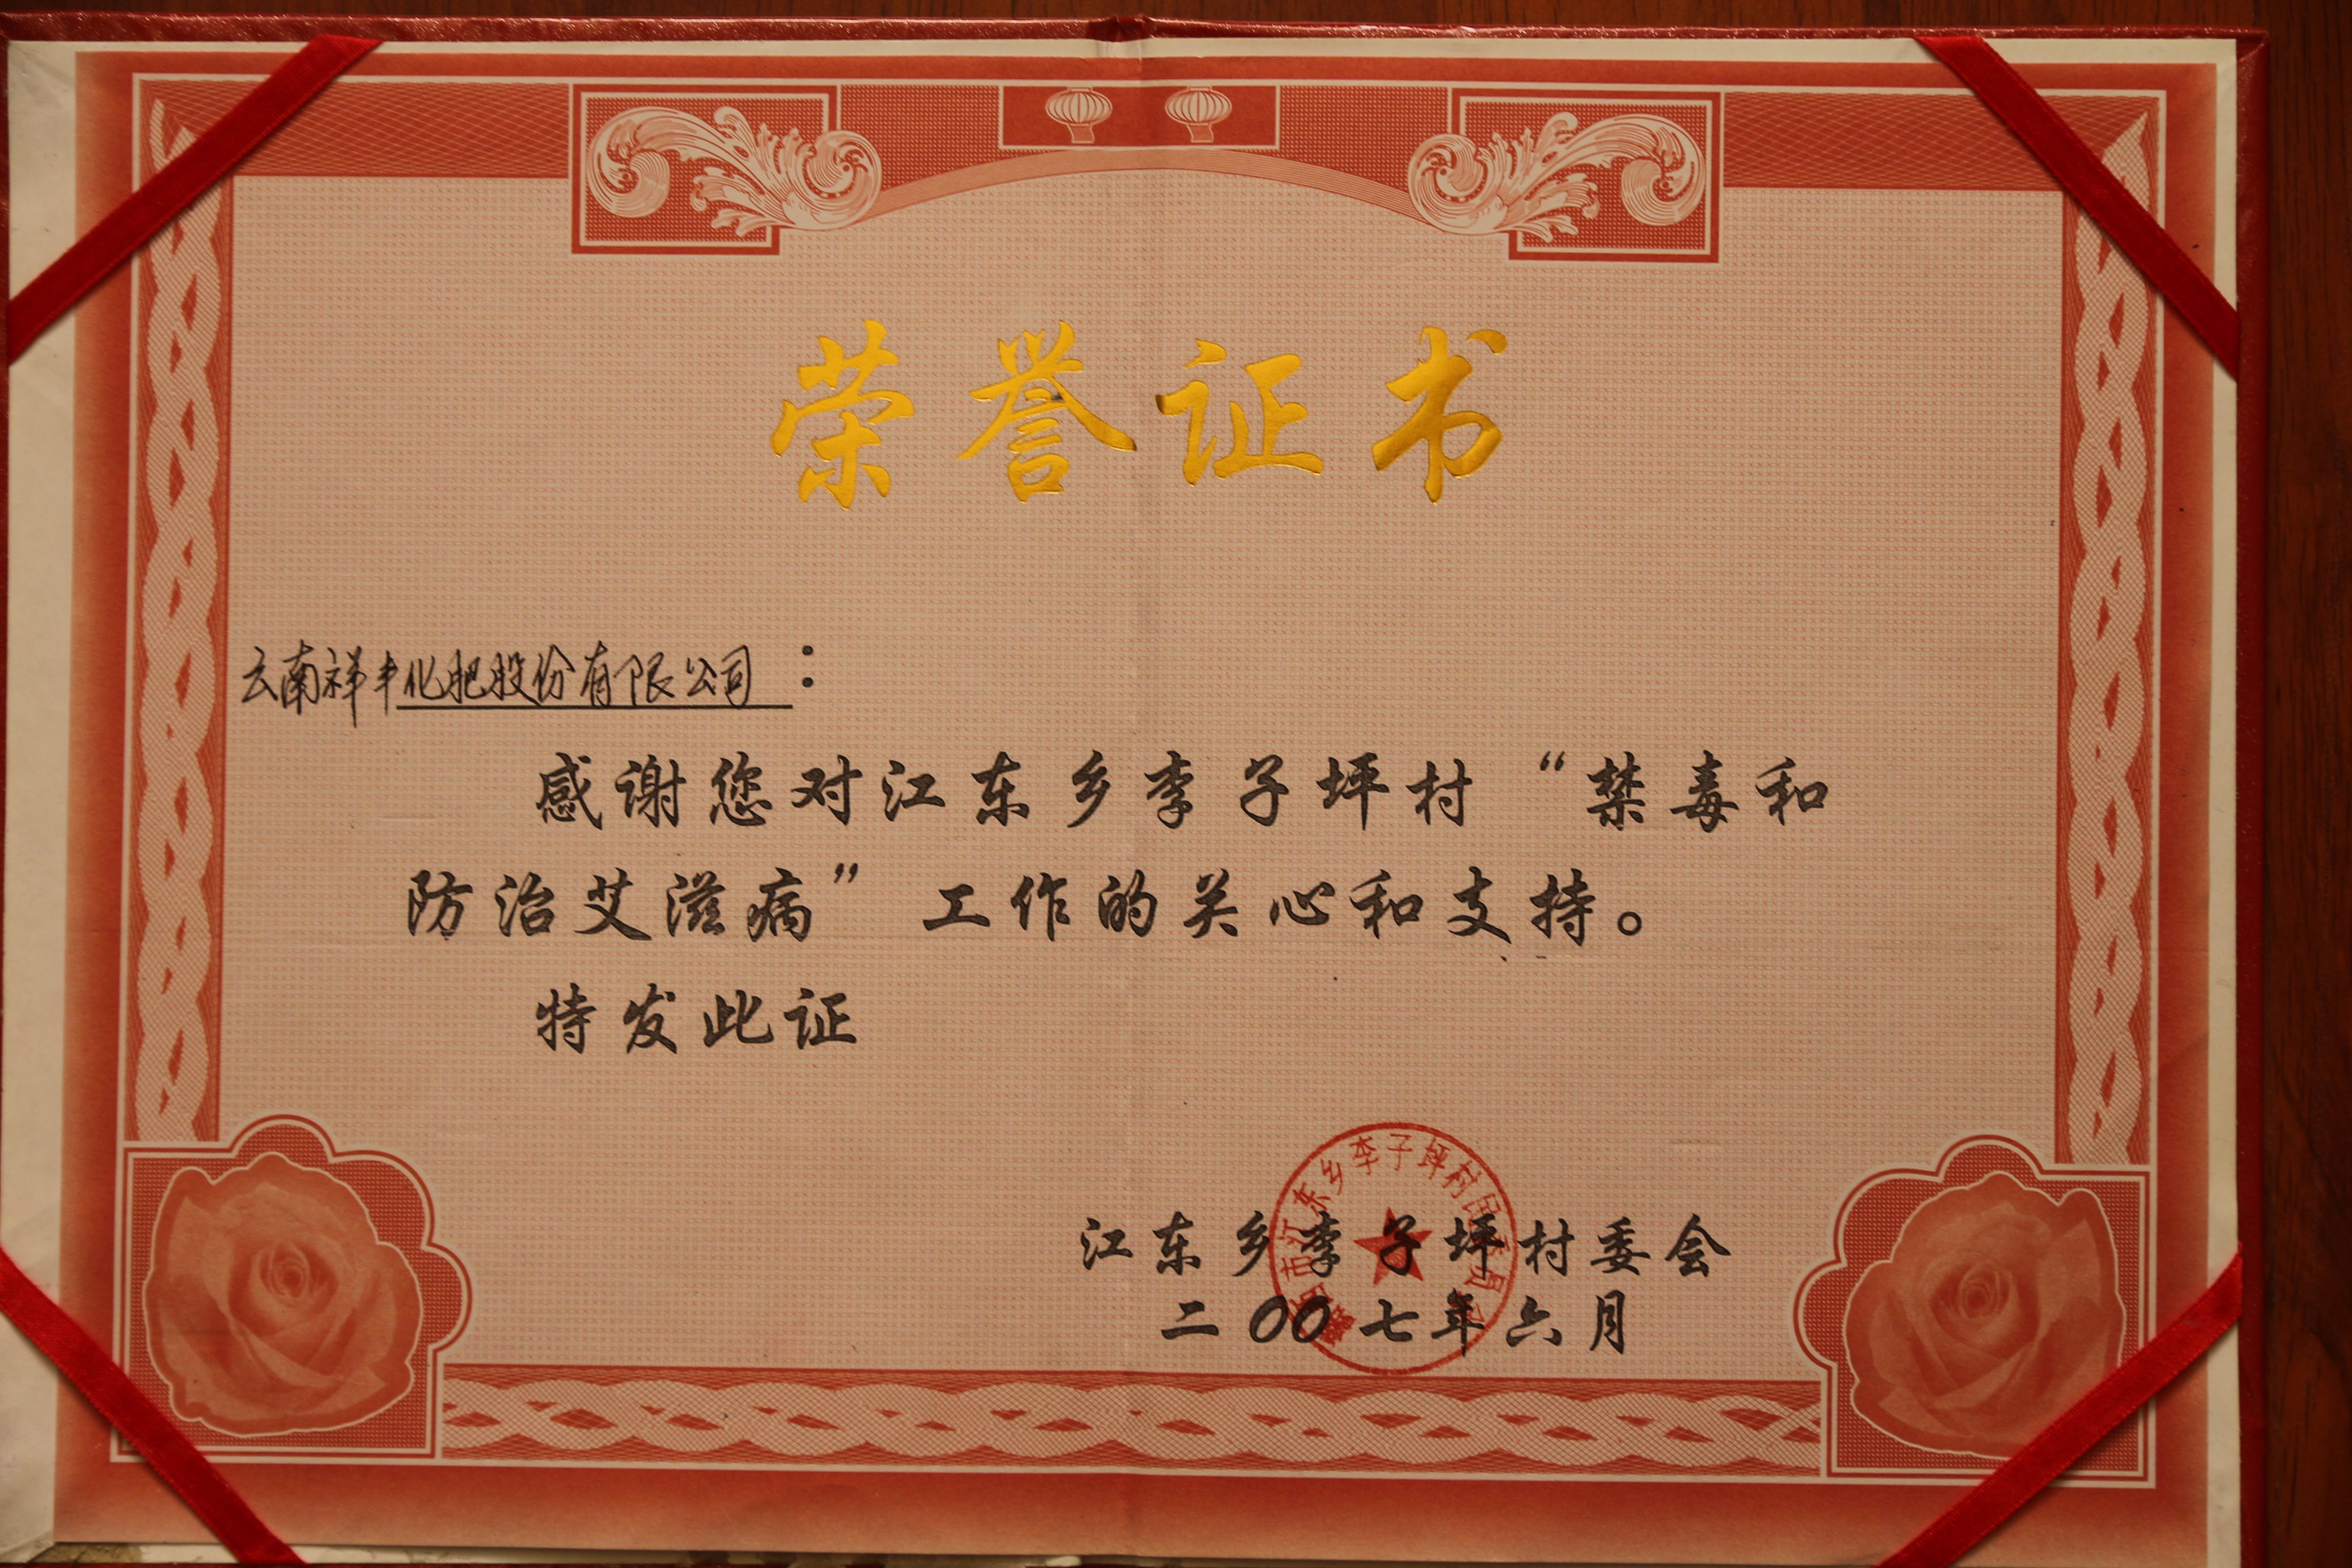 荣誉证书
云南祥丰化肥股份有限公司：
感谢您对江东乡李子坪村“禁毒和
防治艾滋病”工作的关心和支持。
特发此证
江东乡李子坪村委会
二00七年六月
江东乡李子坪村